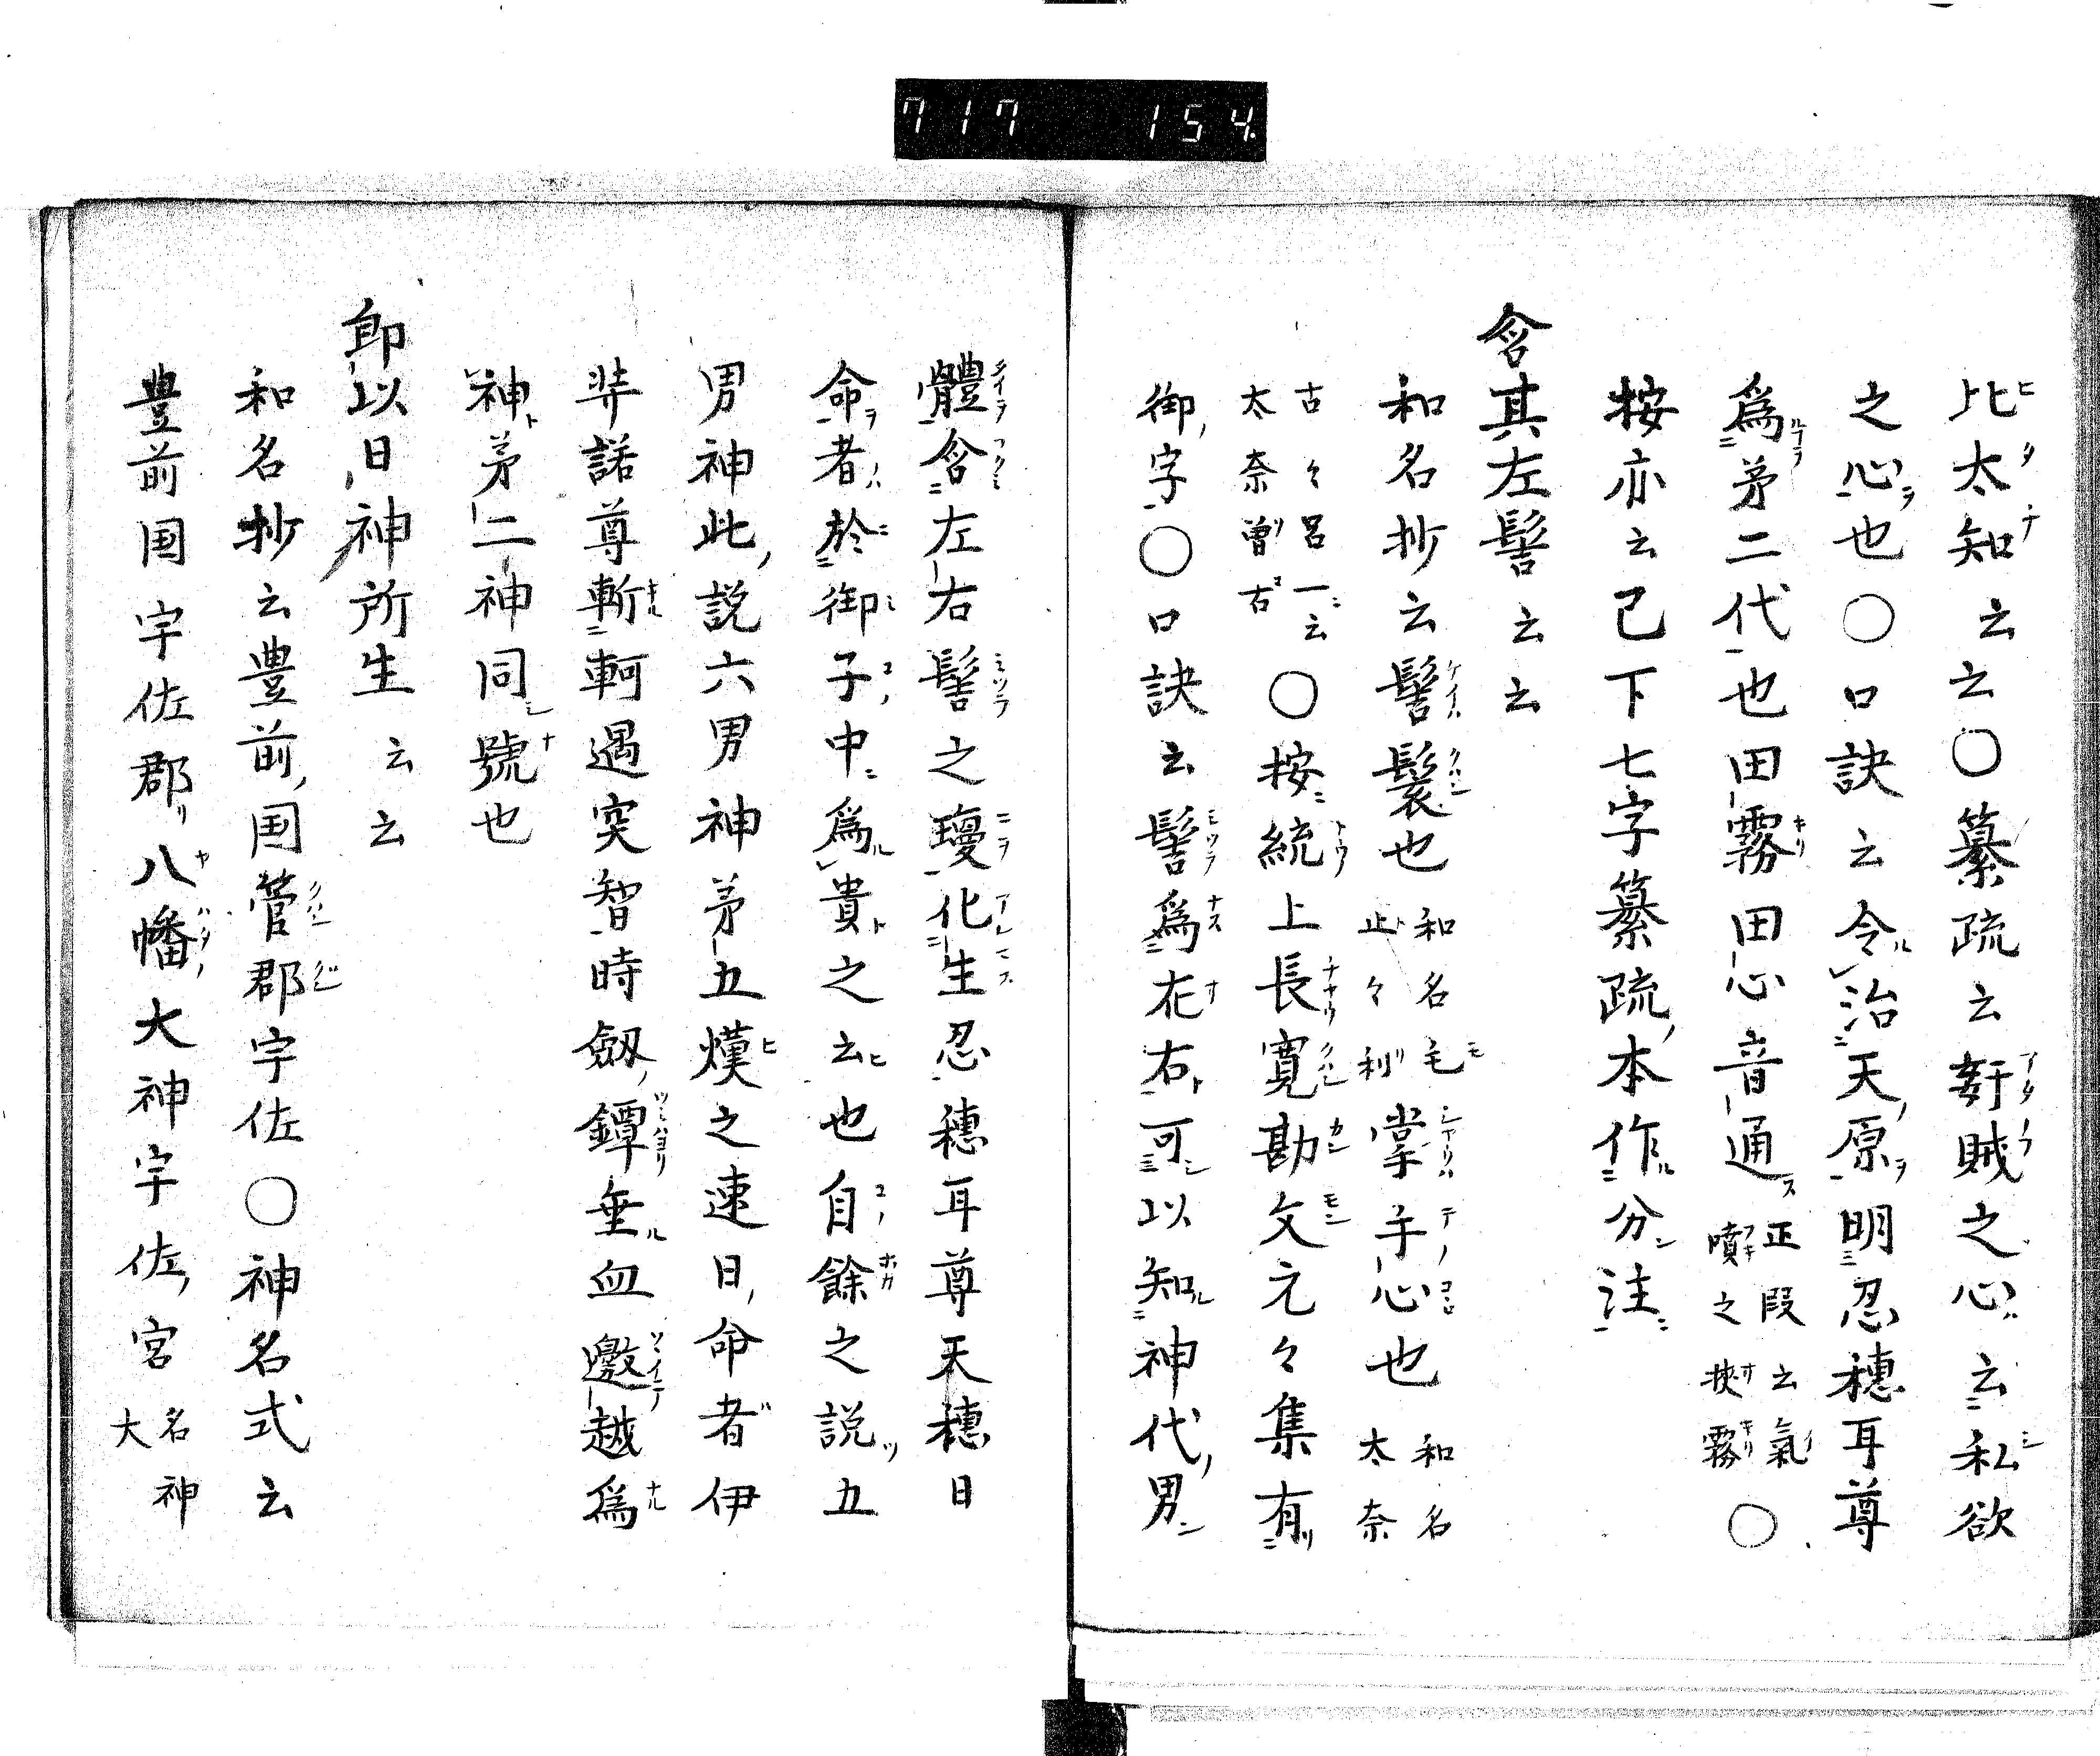 717 154.
比太知云云〇纂疏云姧賊之心云私欲
之心也〇口訣云令治天原明忍穂耳尊
爲茅二代也田霧田心音通正段云氣噴之挾霧〇
按亦云已下七字纂疏本作分注
含其左髻云云
和名抄云髻鬟也和名毛止々利掌手心也和名太奈
古々呂一云太奈曽古〇按統上長寛勘文元々集有
御字〇口訣云髻爲左右可以知神代男
體含左右髻之瓊化生忍穂耳尊天穂日
命者於御子中爲貴之云也自餘之説五
男神此説六男神茅五熯之速日命者伊
弉諾尊斬軻遇突智時劔鐔垂血邀越爲
神茅二神同號也
即以日神所生云云
和名抄云豊前国管郡宇佐〇神名式云
豊前国宇佐郡八幡大神宇佐宮名神大